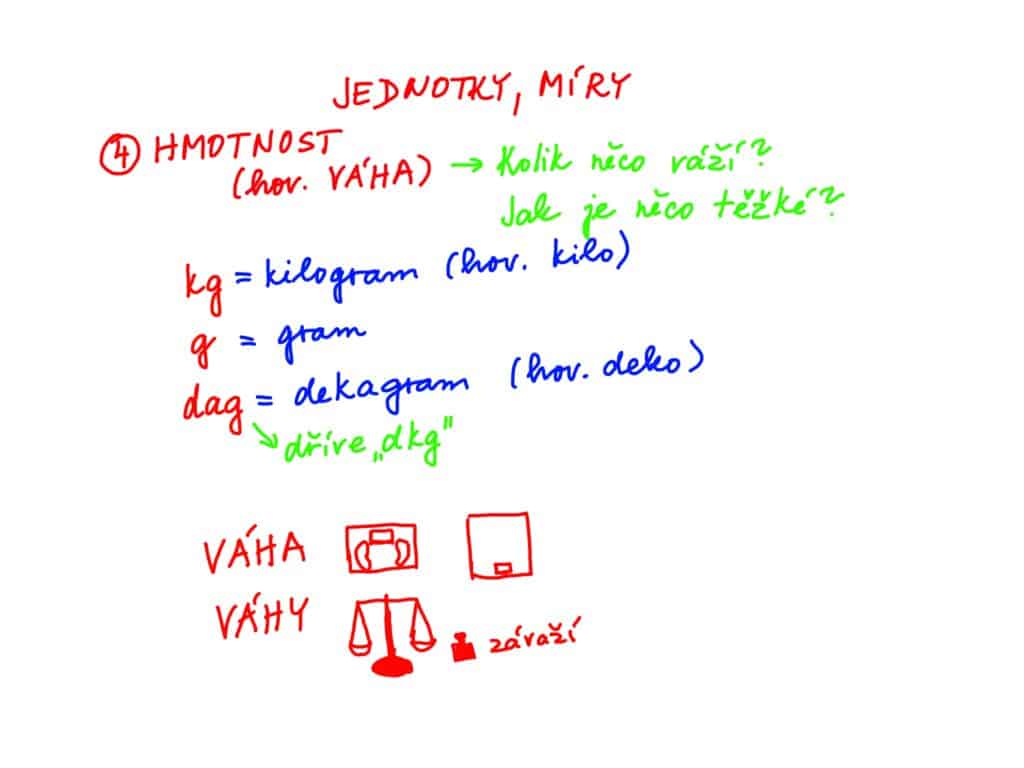 JEDNOTKY, MÍRY
④ HMOTNOST
(hov. VÁHA) → Kolik něco váží?
Jak je něco těžké?
kg = kilogram (hov. kilo)
g = gram
dag = dekagram (hov. deko)
↘ dříve „dkg"
VÁHA
VÁHY
závaží